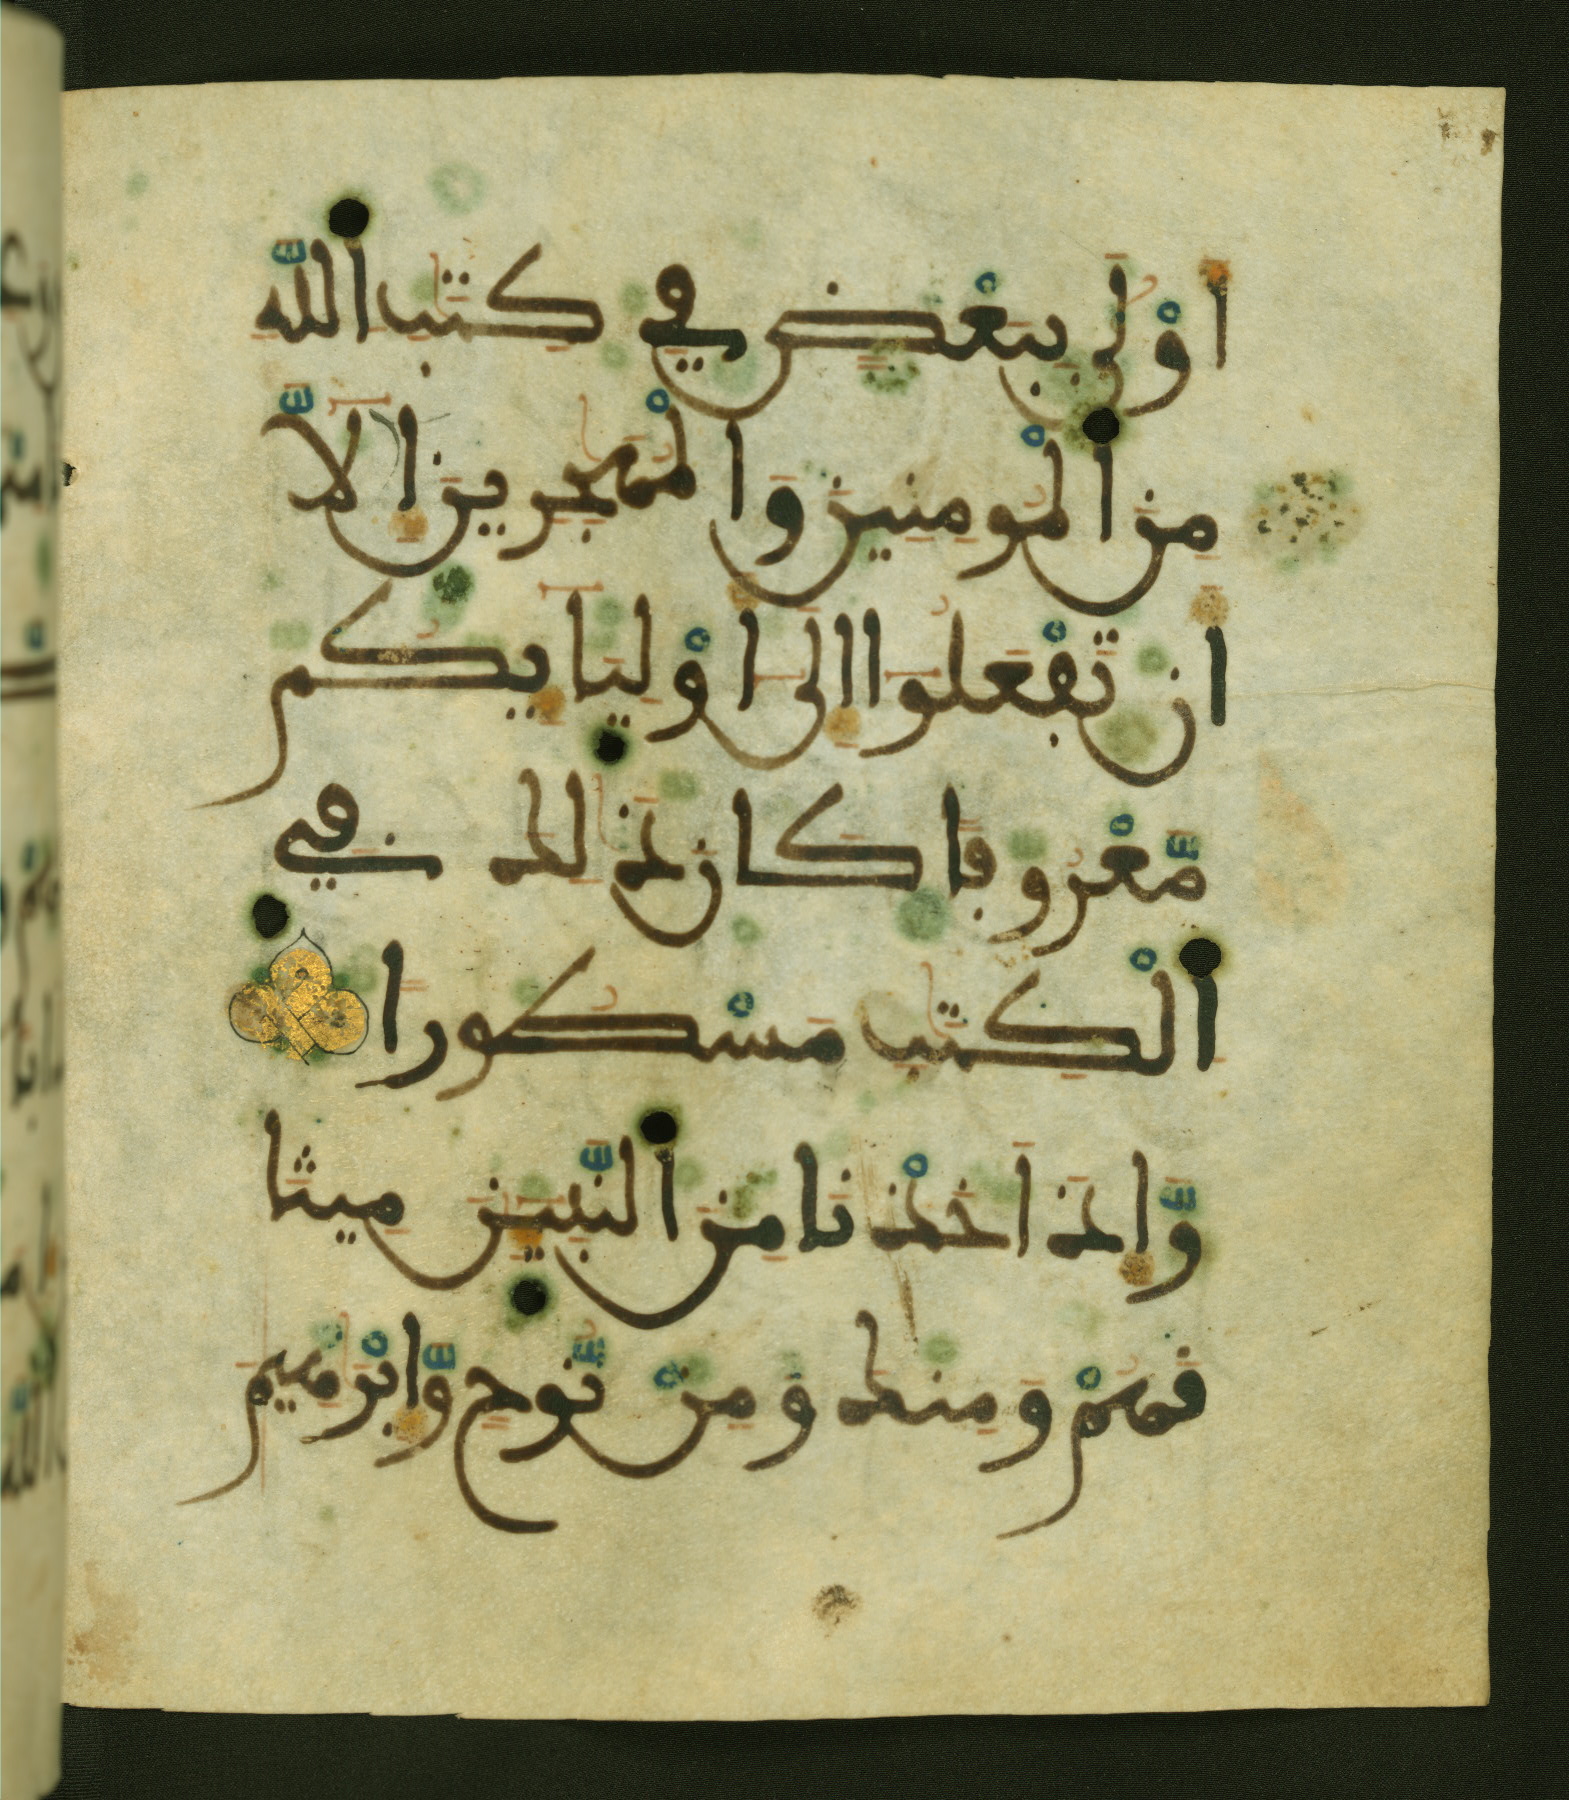 اوْلى ببعْض في كتب اللّه
من الْمومنين والْمهجرين الّا
ان تفْعلوا الى اوْلياىكم
مّعْروفا كان ذلك في
الْكتب مسْطورا
وّاذ اخذْنا من النّبيين ميثا
قهمْ ومنك ومنْ نّوح وّابْرهيم